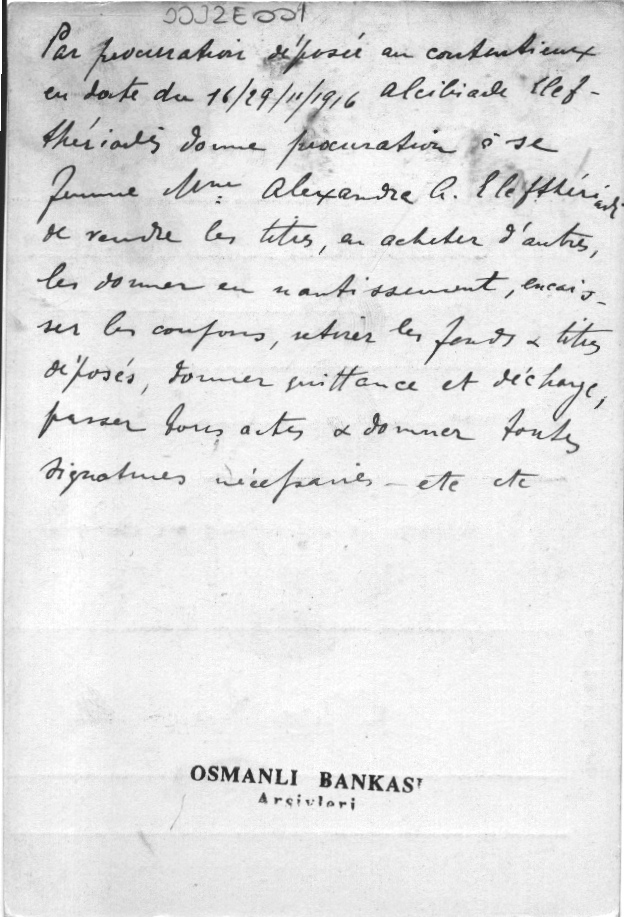 Par procuration déposée au contentieux
en date du 16/29/11/1916 Alcibiade Elef-
thériadès donne procuration à se
femme Mme Alexandra A. Elefthériadès
de vendre les titres, en acheter d'autres,
les donner en nantissement, encais-
ser les coupons, retirer les fonds & titres
déposés, donner quittance et décharge,
passer tous actes & donner toutes
signatures nécessaires - etc etc
OSMANLI BANKASI
Arşivleri